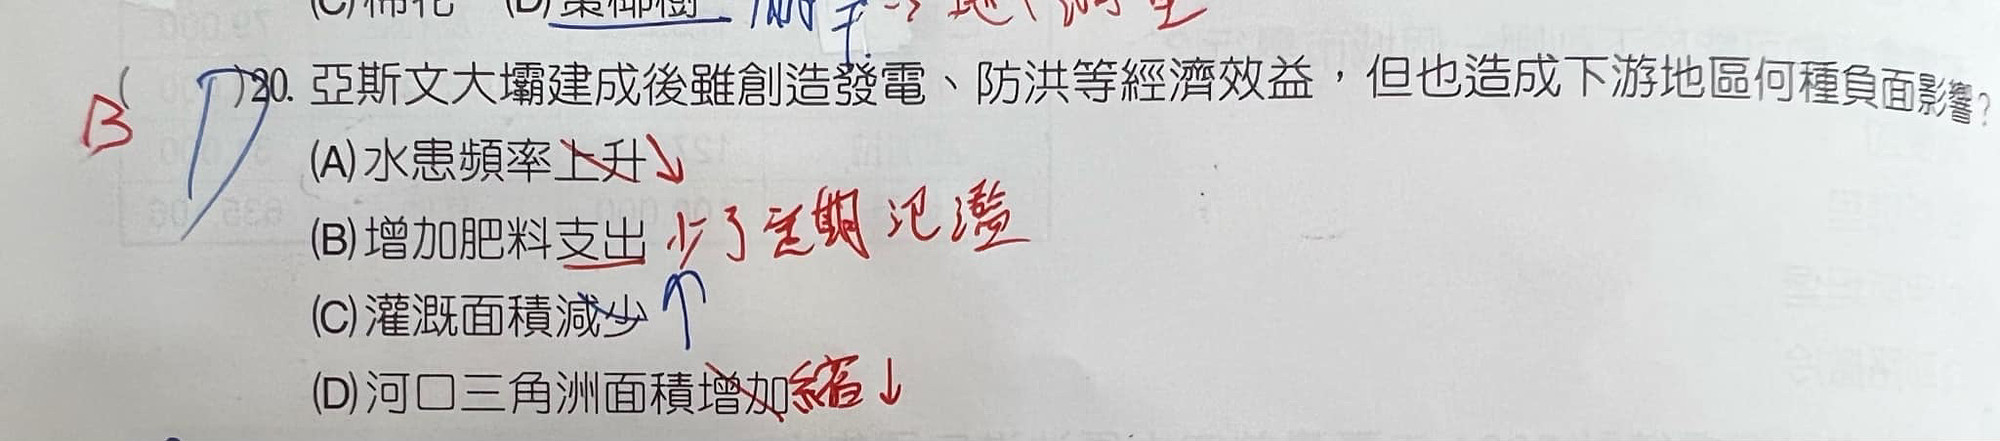 (C)棉花 (D)棗椰樹
B ( D )20. 亞斯文大壩建成後雖創造發電、防洪等經濟效益，但也造成下游地區何種負面影響？
(A)水患頻率上升↓
(B)增加肥料支出 少了定期氾濫
(C)灌溉面積減少 ↑
(D)河口三角洲面積增加 縮↓